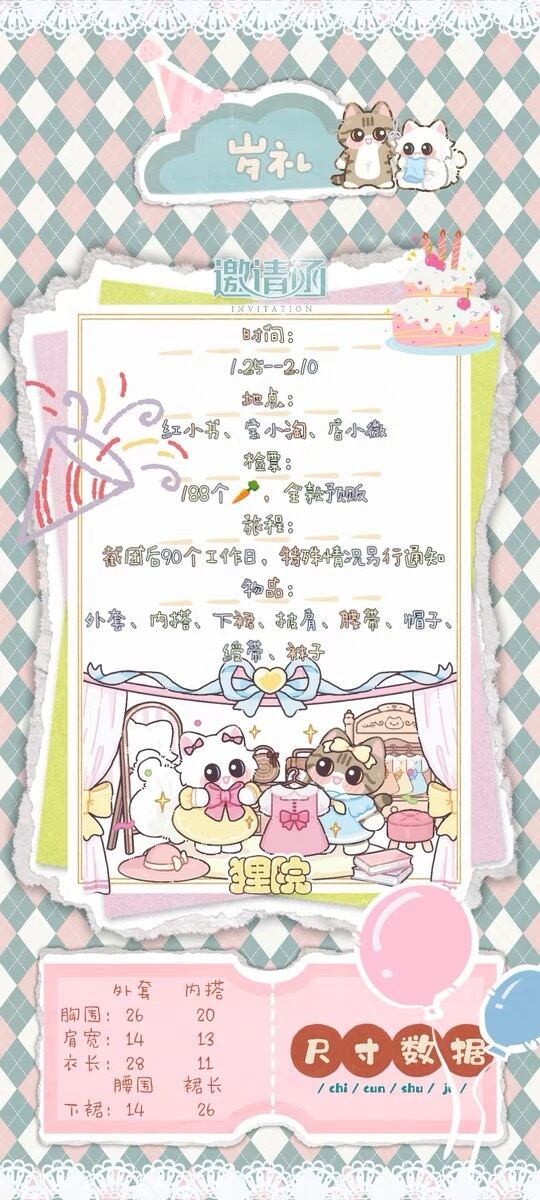 岁礼
邀请函
INVITATION
时间：
1.25--2.10
地点：
红小书、宝小淘、店小微
检票：
188个🥕，全款预贩
旅程：
截团后90个工作日，特殊情况另行通知
物品：
外套、内搭、下裙、披肩、腰带、帽子、
绶带、裤子
狸院
外套 内搭
胸围：26 20
肩宽：14 13
衣长：28 11
腰围 裙长
下裙：14 26
尺寸数据
/ chi / cun / shu / ju /